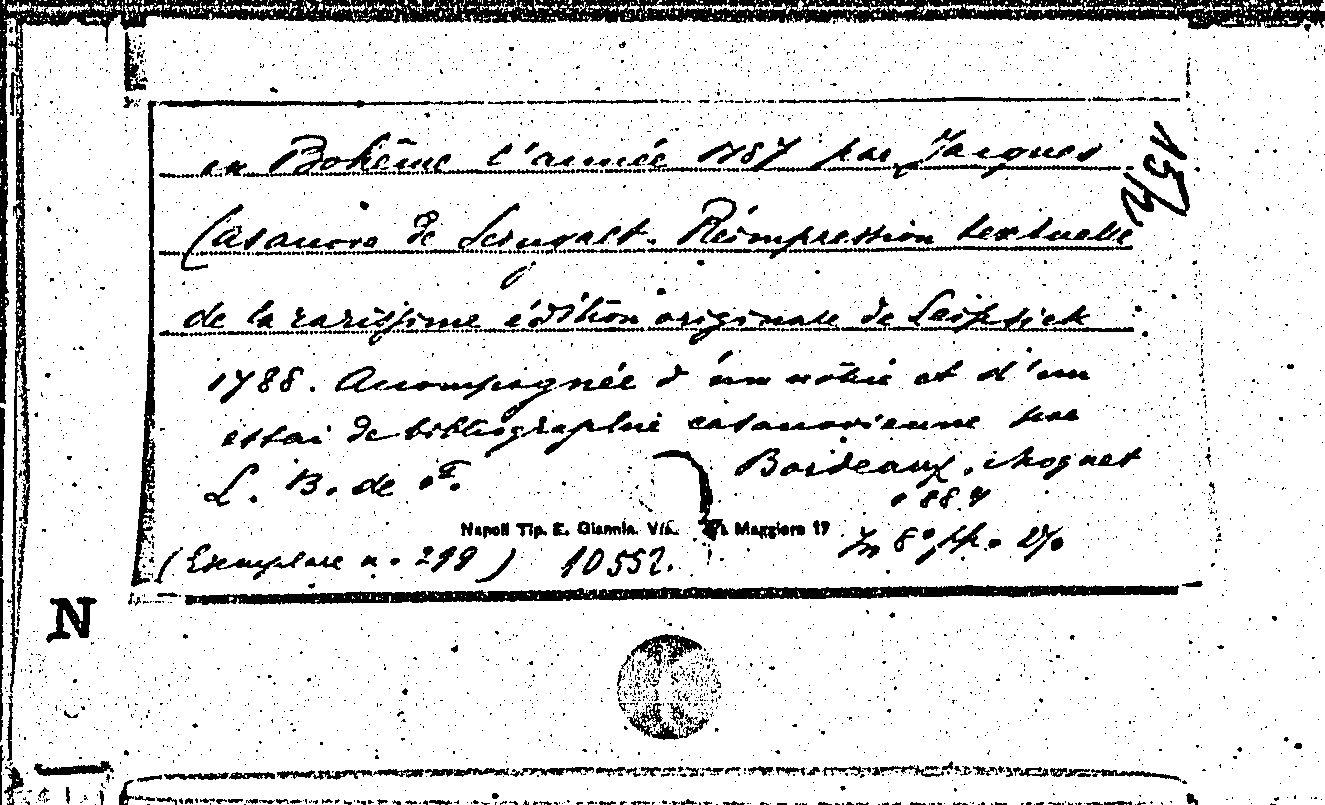 en Bohême l'année 1787 par Jacques
Casanova de Seingalt. Réimpression textuelle
de la rarissime édition originale de Leipsick
1788. Accompagnée d'une notice et d'un
essai de bibliographie casanovienne par
L. B. de F. Bordeaux,
1887
Napoli Tip. E. Giannin. Via Maggiore 17
In 8° pp.
(Exemplaire n. 299) 10552.
N